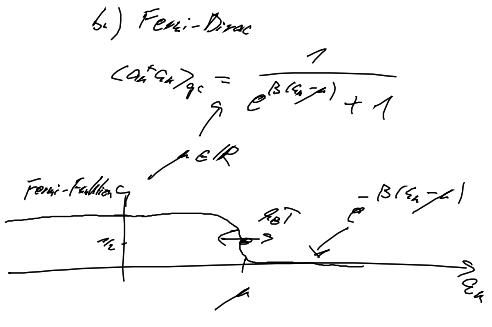 b.) Fermi-Dirac
⟨a_k^+ a_k⟩_gc = 1 / (e^{β(ε_k-μ)} + 1)
μ ∈ ℝ
Fermi-Funktion
k_B T
e^{-β(ε_k-μ)}
1/2
ε_k
μ